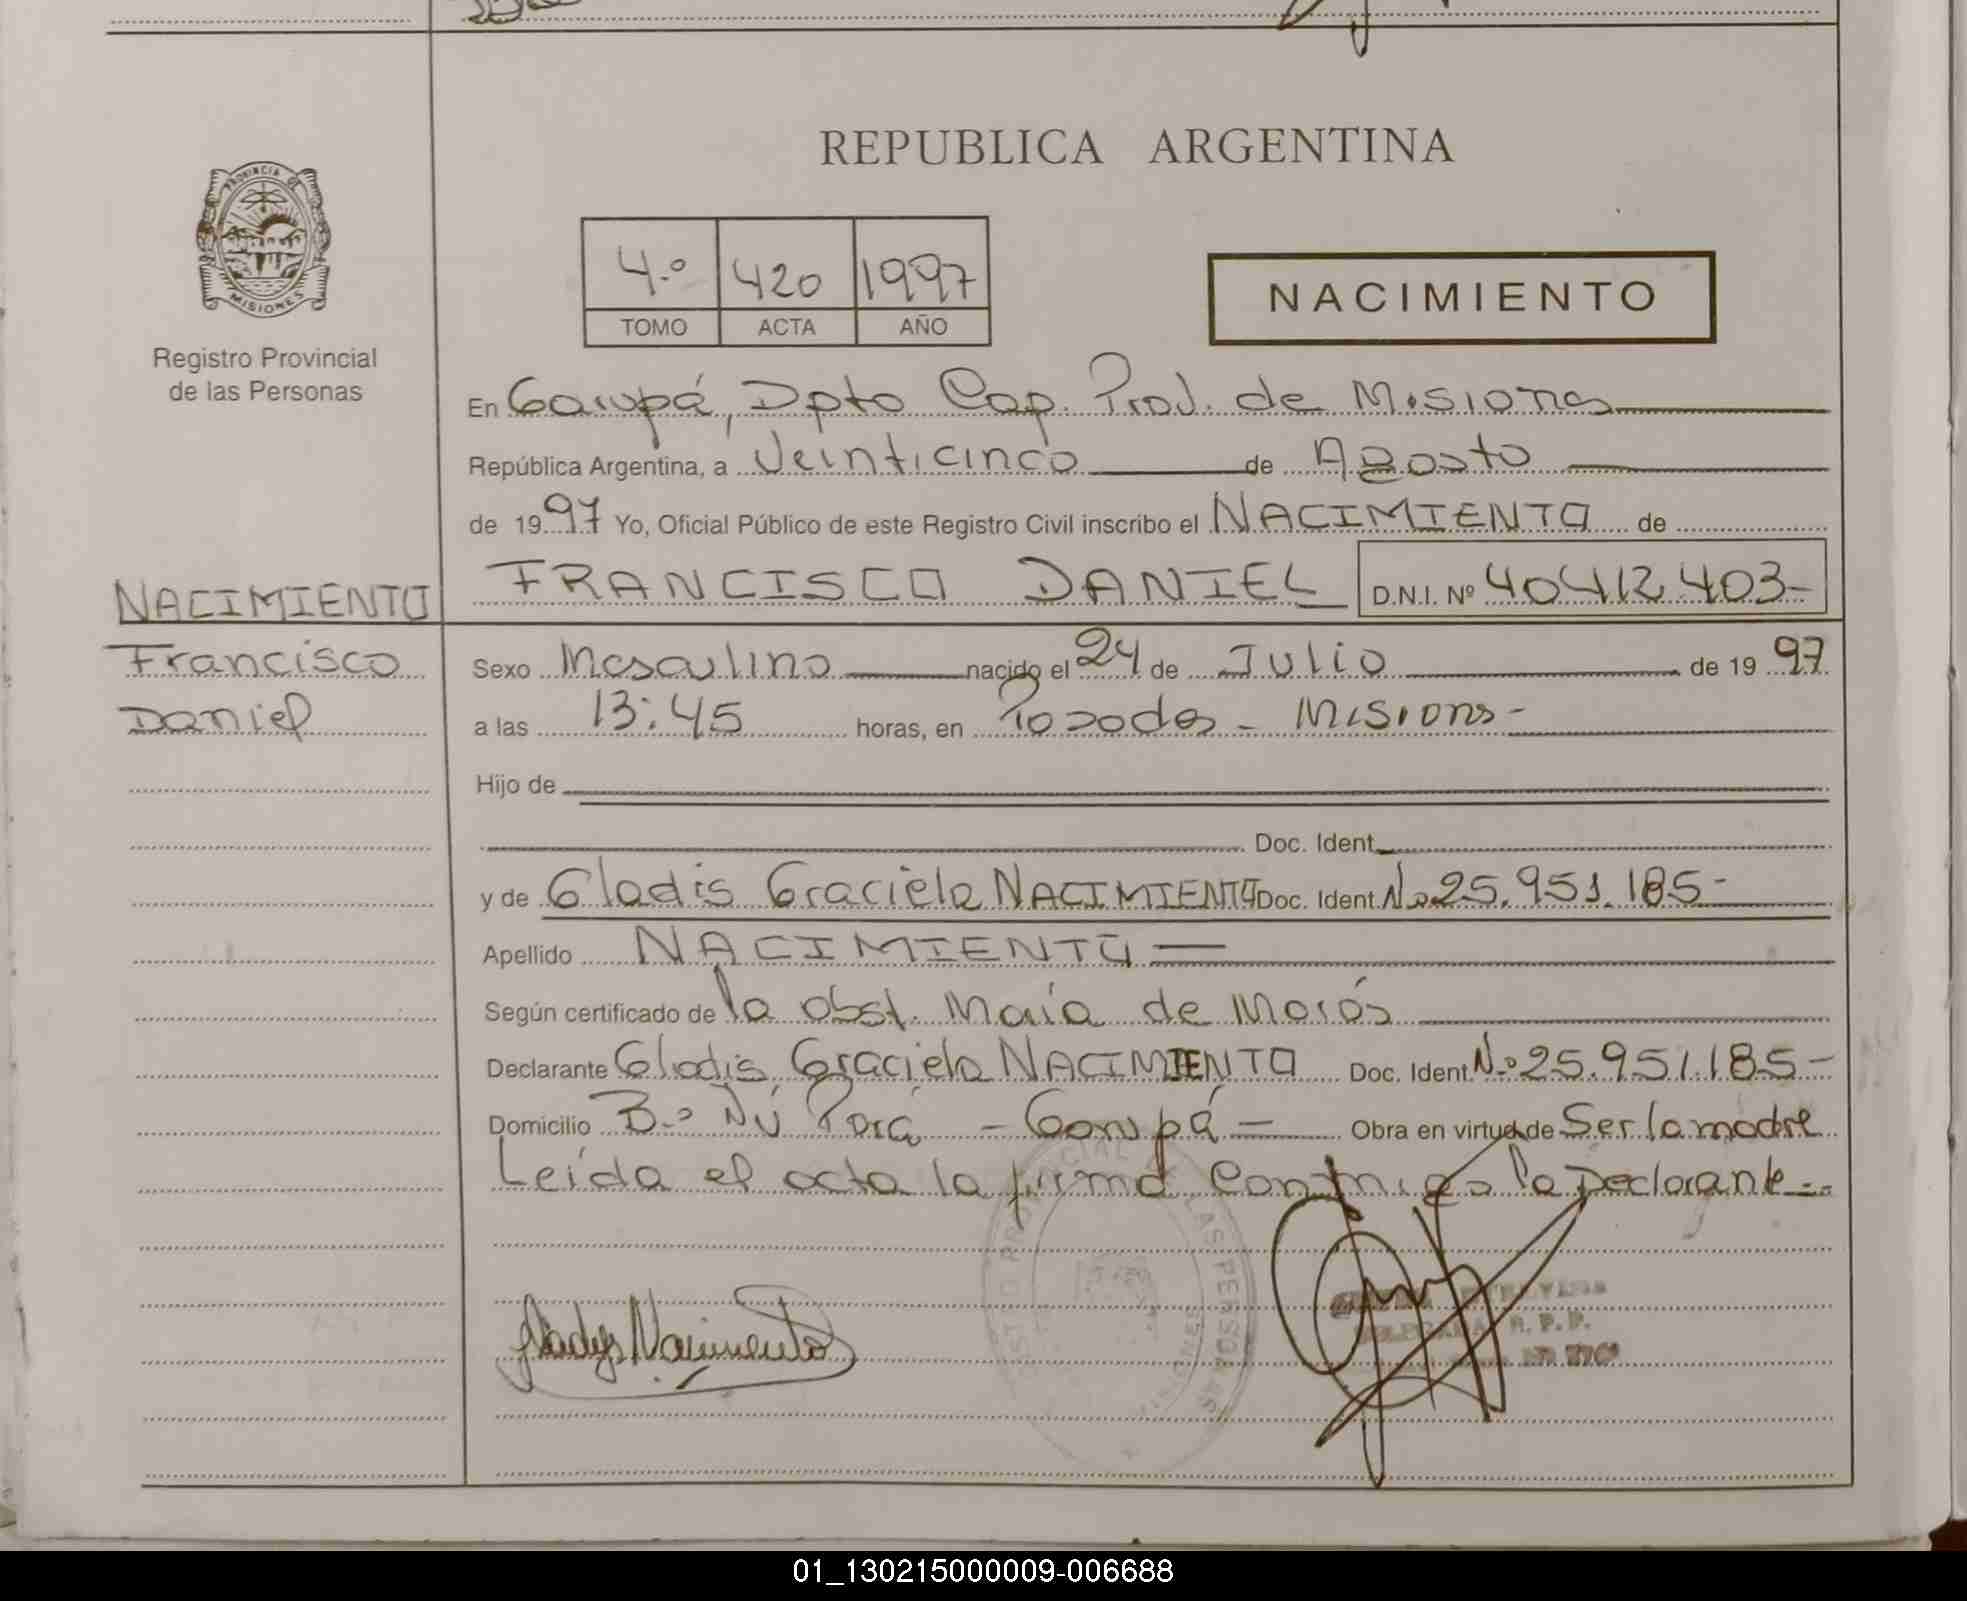 REPUBLICA ARGENTINA
PROVINCIA DE
MISIONES
Registro Provincial
de las Personas
4.º 420 1997
TOMO ACTA AÑO
NACIMIENTO
En Garupá, Dpto Cap. Prov. de Misiones
República Argentina, a Veinticinco de Agosto
de 1997 Yo, Oficial Público de este Registro Civil inscribo el NACIMIENTO de
FRANCISCO DANIEL D.N.I. Nº 40412.403-
NACIMIENTO
Francisco
Daniel
Sexo Masculino nacido el 24 de Julio de 1997
a las 13:45 horas, en Posadas - Misiones -
Hijo de
Doc. Ident.
y de Gladis Graciela NACIMIENTO Doc. Ident. Nº 25.951.185-
Apellido NACIMIENTO
Según certificado de la obst. María de
Declarante Gladis Graciela NACIMIENTO Doc. Ident. Nº 25.951.185-
Domicilio B.º Ñú Porá - Garupá - Obra en virtud de Ser la madre
Leída el acta la firma Conmigo la Declarante
Gladys Nacimiento
R. P. P.
01_130215000009-006688